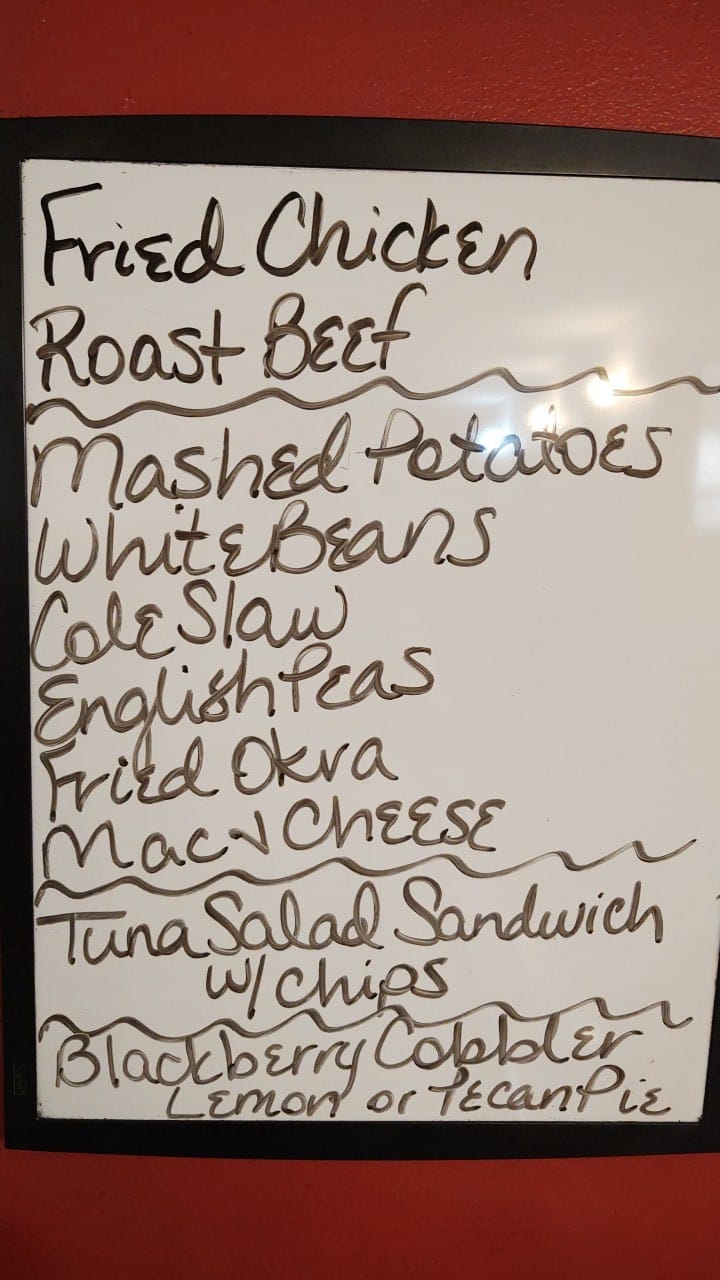 Fried Chicken
Roast Beef
Mashed Potatoes
White Beans
Cole Slaw
English Peas
Fried Okra
Mac & Cheese
Tuna Salad Sandwich
w/ chips
Blackberry Cobbler
Lemon or Pecan Pie